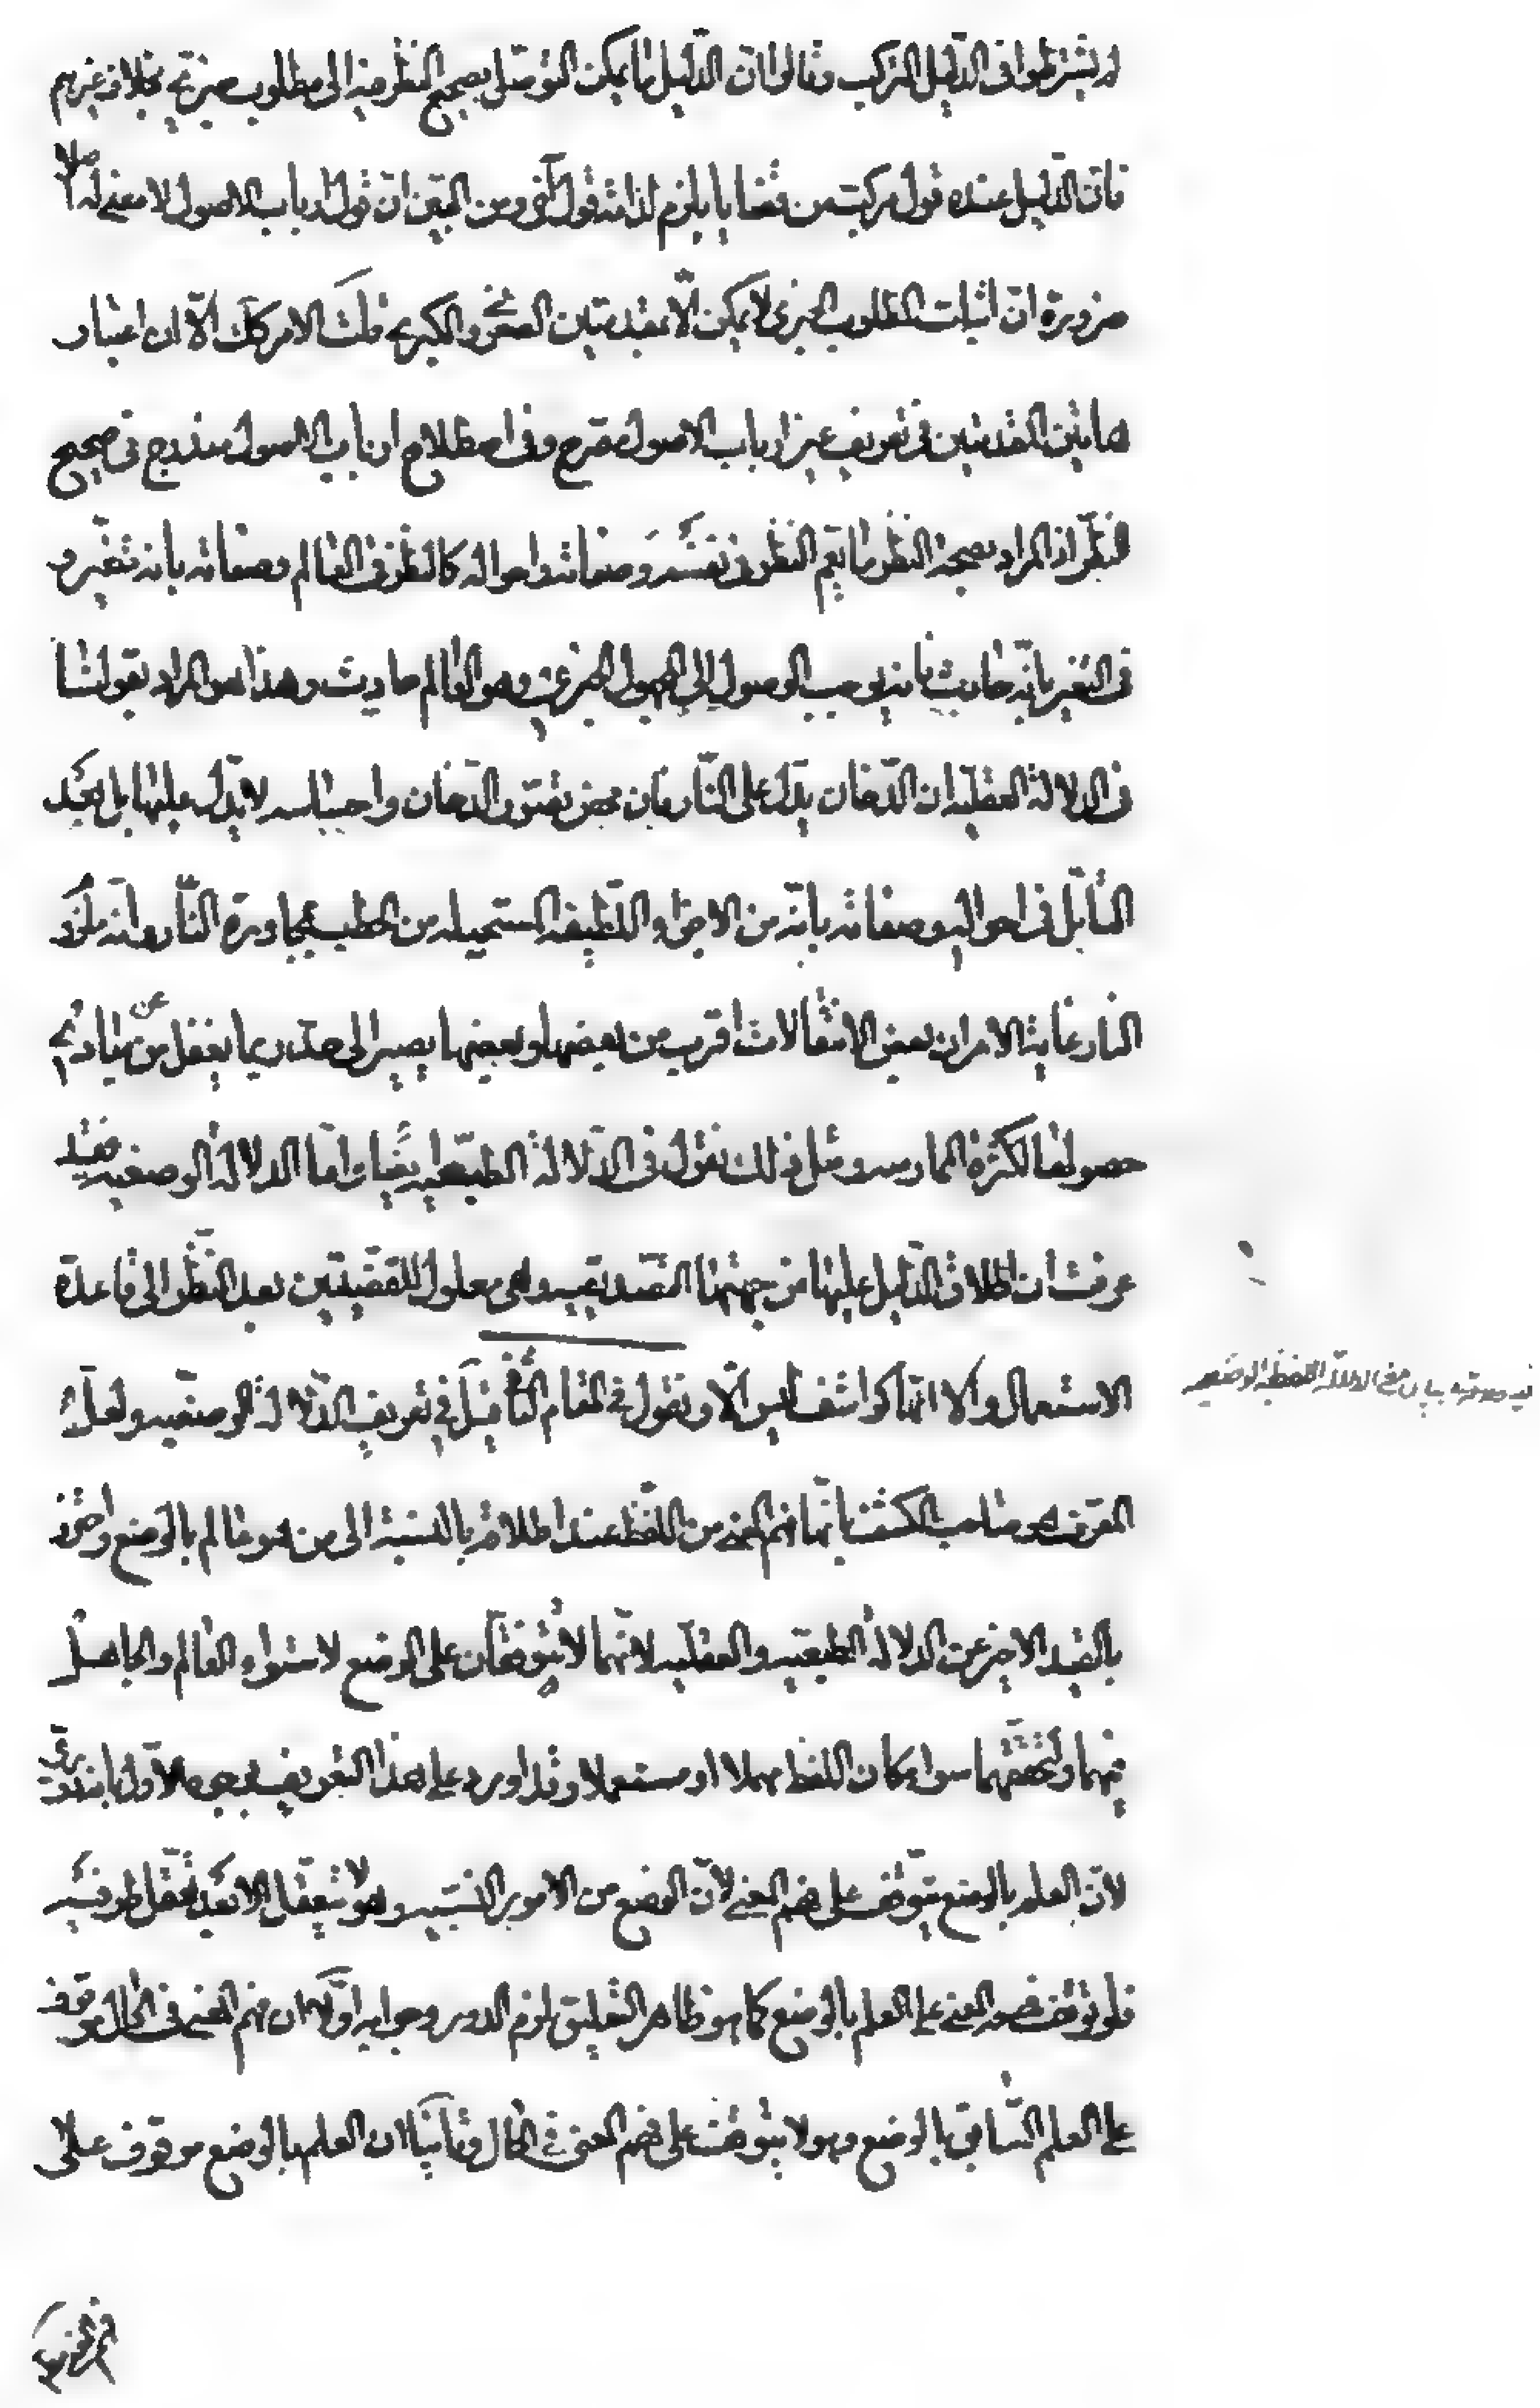 لم يشترطوا فى الدليل التركيب وقالوا ان الدليل ما يمكن التوصل بصحيح النظر فيه الى مطلوب خبرى بخلاف غيرهم
فان الدليل عنده قول مركب من قضايا يلزم لذاته قول آخر ومن البين ان قول ارباب الاصول لا معنى له اصلا
ضرورة ان اثبات المطلوب الخبرى لا يمكن الا بمقدمتين الصغرى والكبرى قلت الامر كك الا ان اعتبار
هاتين المقدمتين فى تعريف غير ارباب الاصول مصرح وفى اصطلاح ارباب الاصول مندرج فى صحيح
النظر اذ المراد بصحيح النظر ما يعم النظر فى نفسه وصفاته واحواله كالنظر فى العالم وصفاته بانه متغير و
فى التغير بانه حادث فانه يوجب الوصول الى المجهول الخبرى وهو العالم حادث وهذا هو المراد بقولنا
فى الدلالة العقلية ان الدخان يدل على النار فان محض تصور الدخان واحساسه لا يدل عليها بل بعد
التأمل فى احواله وصفاته بانه من الاجزاء اللطيفة المستحيله من الحطب بمجاورة النار وانه ملزوم
النار غاية الامر ان بعض الانتقالات اقرب من بعضها وبعضها يصير الى حد ربما يغفل عن مبادئ
حصولها لكثرة الممارسه ومثل ذلك نقول فى الدلالة الطبيعيه واما الدلالة الوضعيه فقد
عرفت ان اطلاق الدليل عليها من جهتها التصديقيه وهى معلول للقضيتين بعد النظر الى قاعدة
الاستعمال والا انها كواشف ليس الا ونقول فى المقام الثانى قيل فى تعريف الدلالة الوضعيه ولعل
المعرف هو صاحب الكشف بانها فهم المعنى من اللفظ عند اطلاقه بالنسبة الى من هو عالم بالوضع واحترز
بالقيد الاخير عن الدلالة الطبيعيه والعقليه لانهما لا يتوقفان على الوضع لاستواء العالم والجاهل
فيهما ولتحققهما سواء كان اللفظ مهملا او مستعملا وقد اورد على هذا التعريف بوجوه الاول بانه دورى
لان العلم بالوضع يتوقف على فهم المعنى لان الوضع من الامور النسبيه وهو لا يتعقل الا بعد تعقل طرفيه
فلو توقف فهم المعنى على العلم بالوضع كما هو ظاهر التعليق لزم الدور وجوابه اولا ان فهم المعنى فى الحال موقوف
على العلم السابق بالوضع وهو لا يتوقف على فهم المعنى فى الحال وثانيا ان العلم بالوضع موقوف على
بيان معنى الدلالة اللفظية الوضعيه